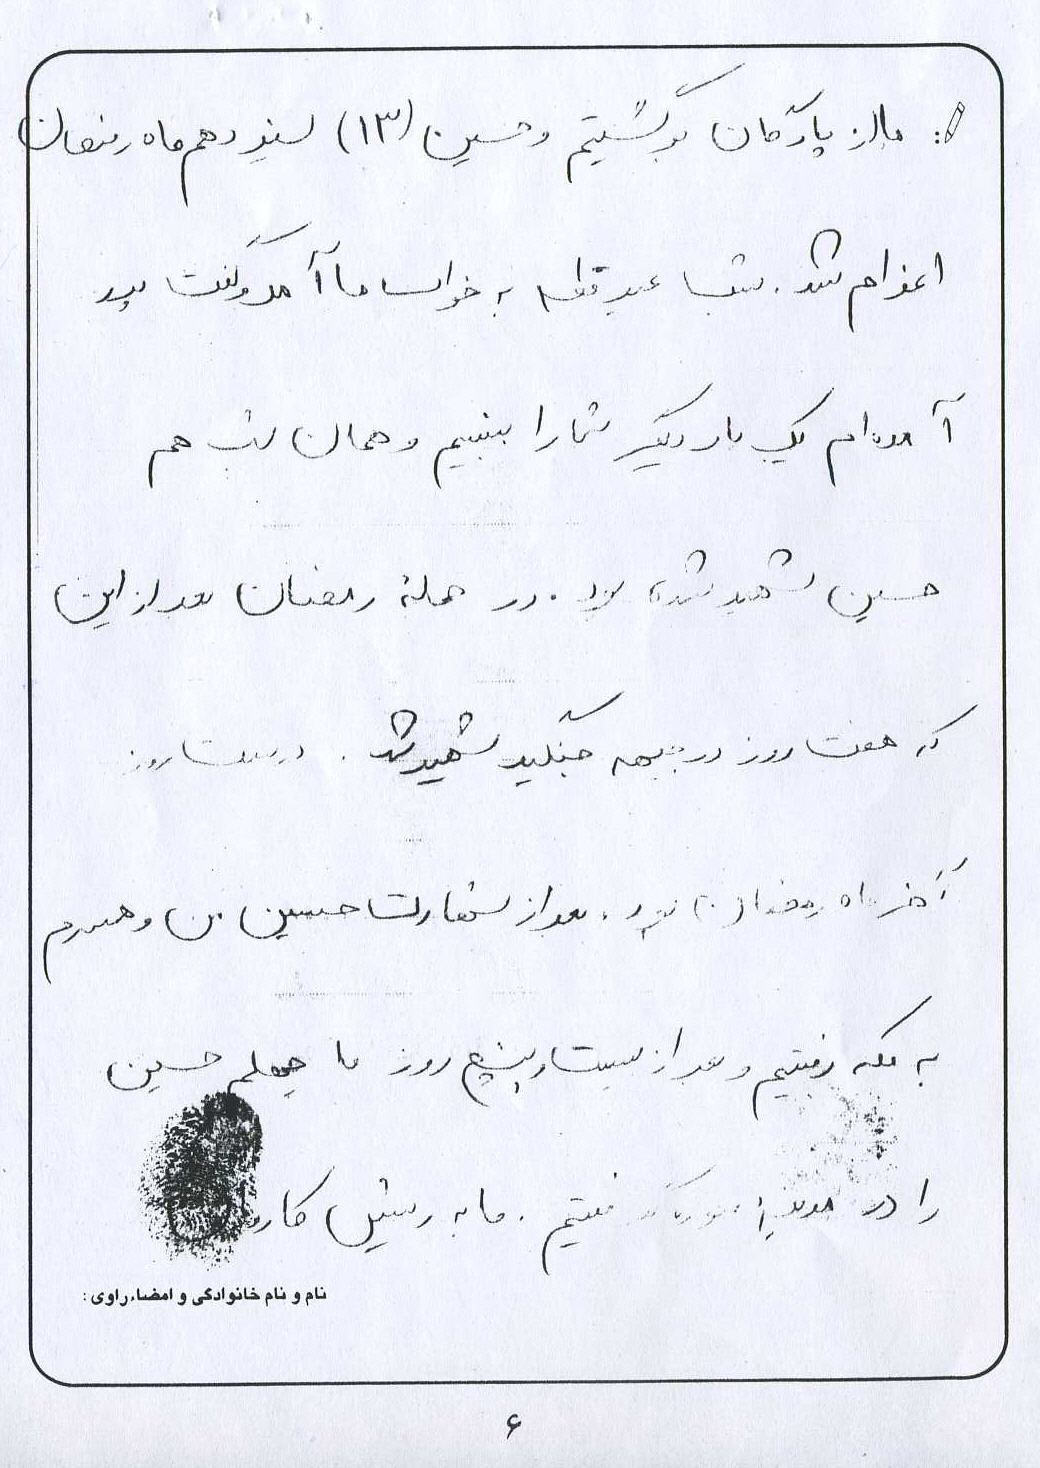 ما از پادگان برگشتیم و حسین (۱۳) سیزدهم ماه رمضان
اعزام شد. شب عید فطر به خواب ما آمد و گفت پدر
آمده‌ام یک بار دیگر شما را ببینم و همان شب هم
حسین شهید شده بود. در حملهٔ رمضان بعد از این
که هفت روز در جبهه جنگید شهید شد. درست روز
آخر ماه رمضان بود. بعد از شهادت حسین من و همسرم
به مکه رفتیم و بعد از بیست و پنج روز ما چهلم حسین
را در مدینه گرفتیم. ما به رئیس کاروان
نام و نام خانوادگی و امضاء راوی:
۶